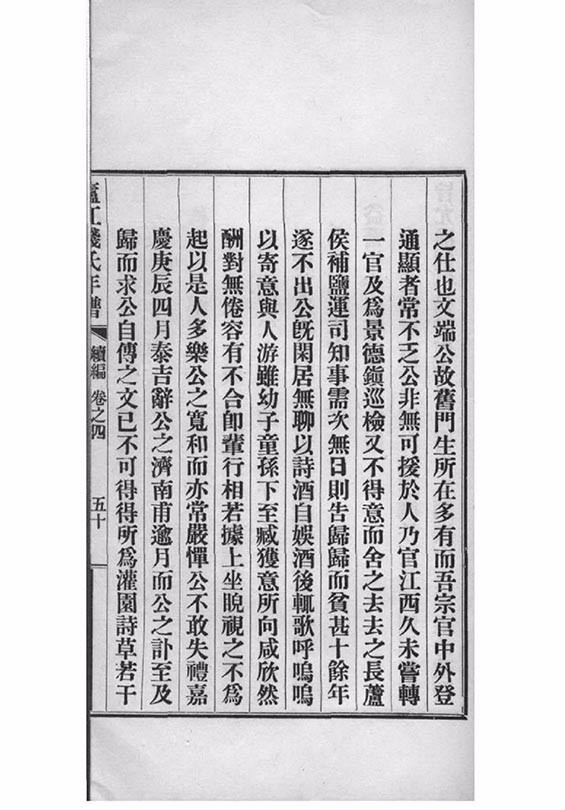 之仕也文端公故舊門生所在多有而吾宗官中外登
通顯者常不乏公非無可援於人乃官江西久未嘗轉
一官及爲景德鎭巡檢又不得意而舍之去去之長蘆
侯補鹽運司知事需次無日則告歸歸而貧甚十餘年
遂不出公旣閑居無聊以詩酒自娛酒後輒歌呼嗚嗚
以寄意與人游雖幼子童孫下至臧獲意所向咸欣然
酬對無倦容有不合卽輩行相若據上坐睨視之不爲
起以是人多樂公之寬和而亦常嚴憚公不敢失禮嘉
慶庚辰四月泰吉辭公之濟南甫逾月而公之訃至及
歸而求公自傳之文已不可得得所爲灌園詩草若干
廬江錢氏年譜 續編 卷之四 五十